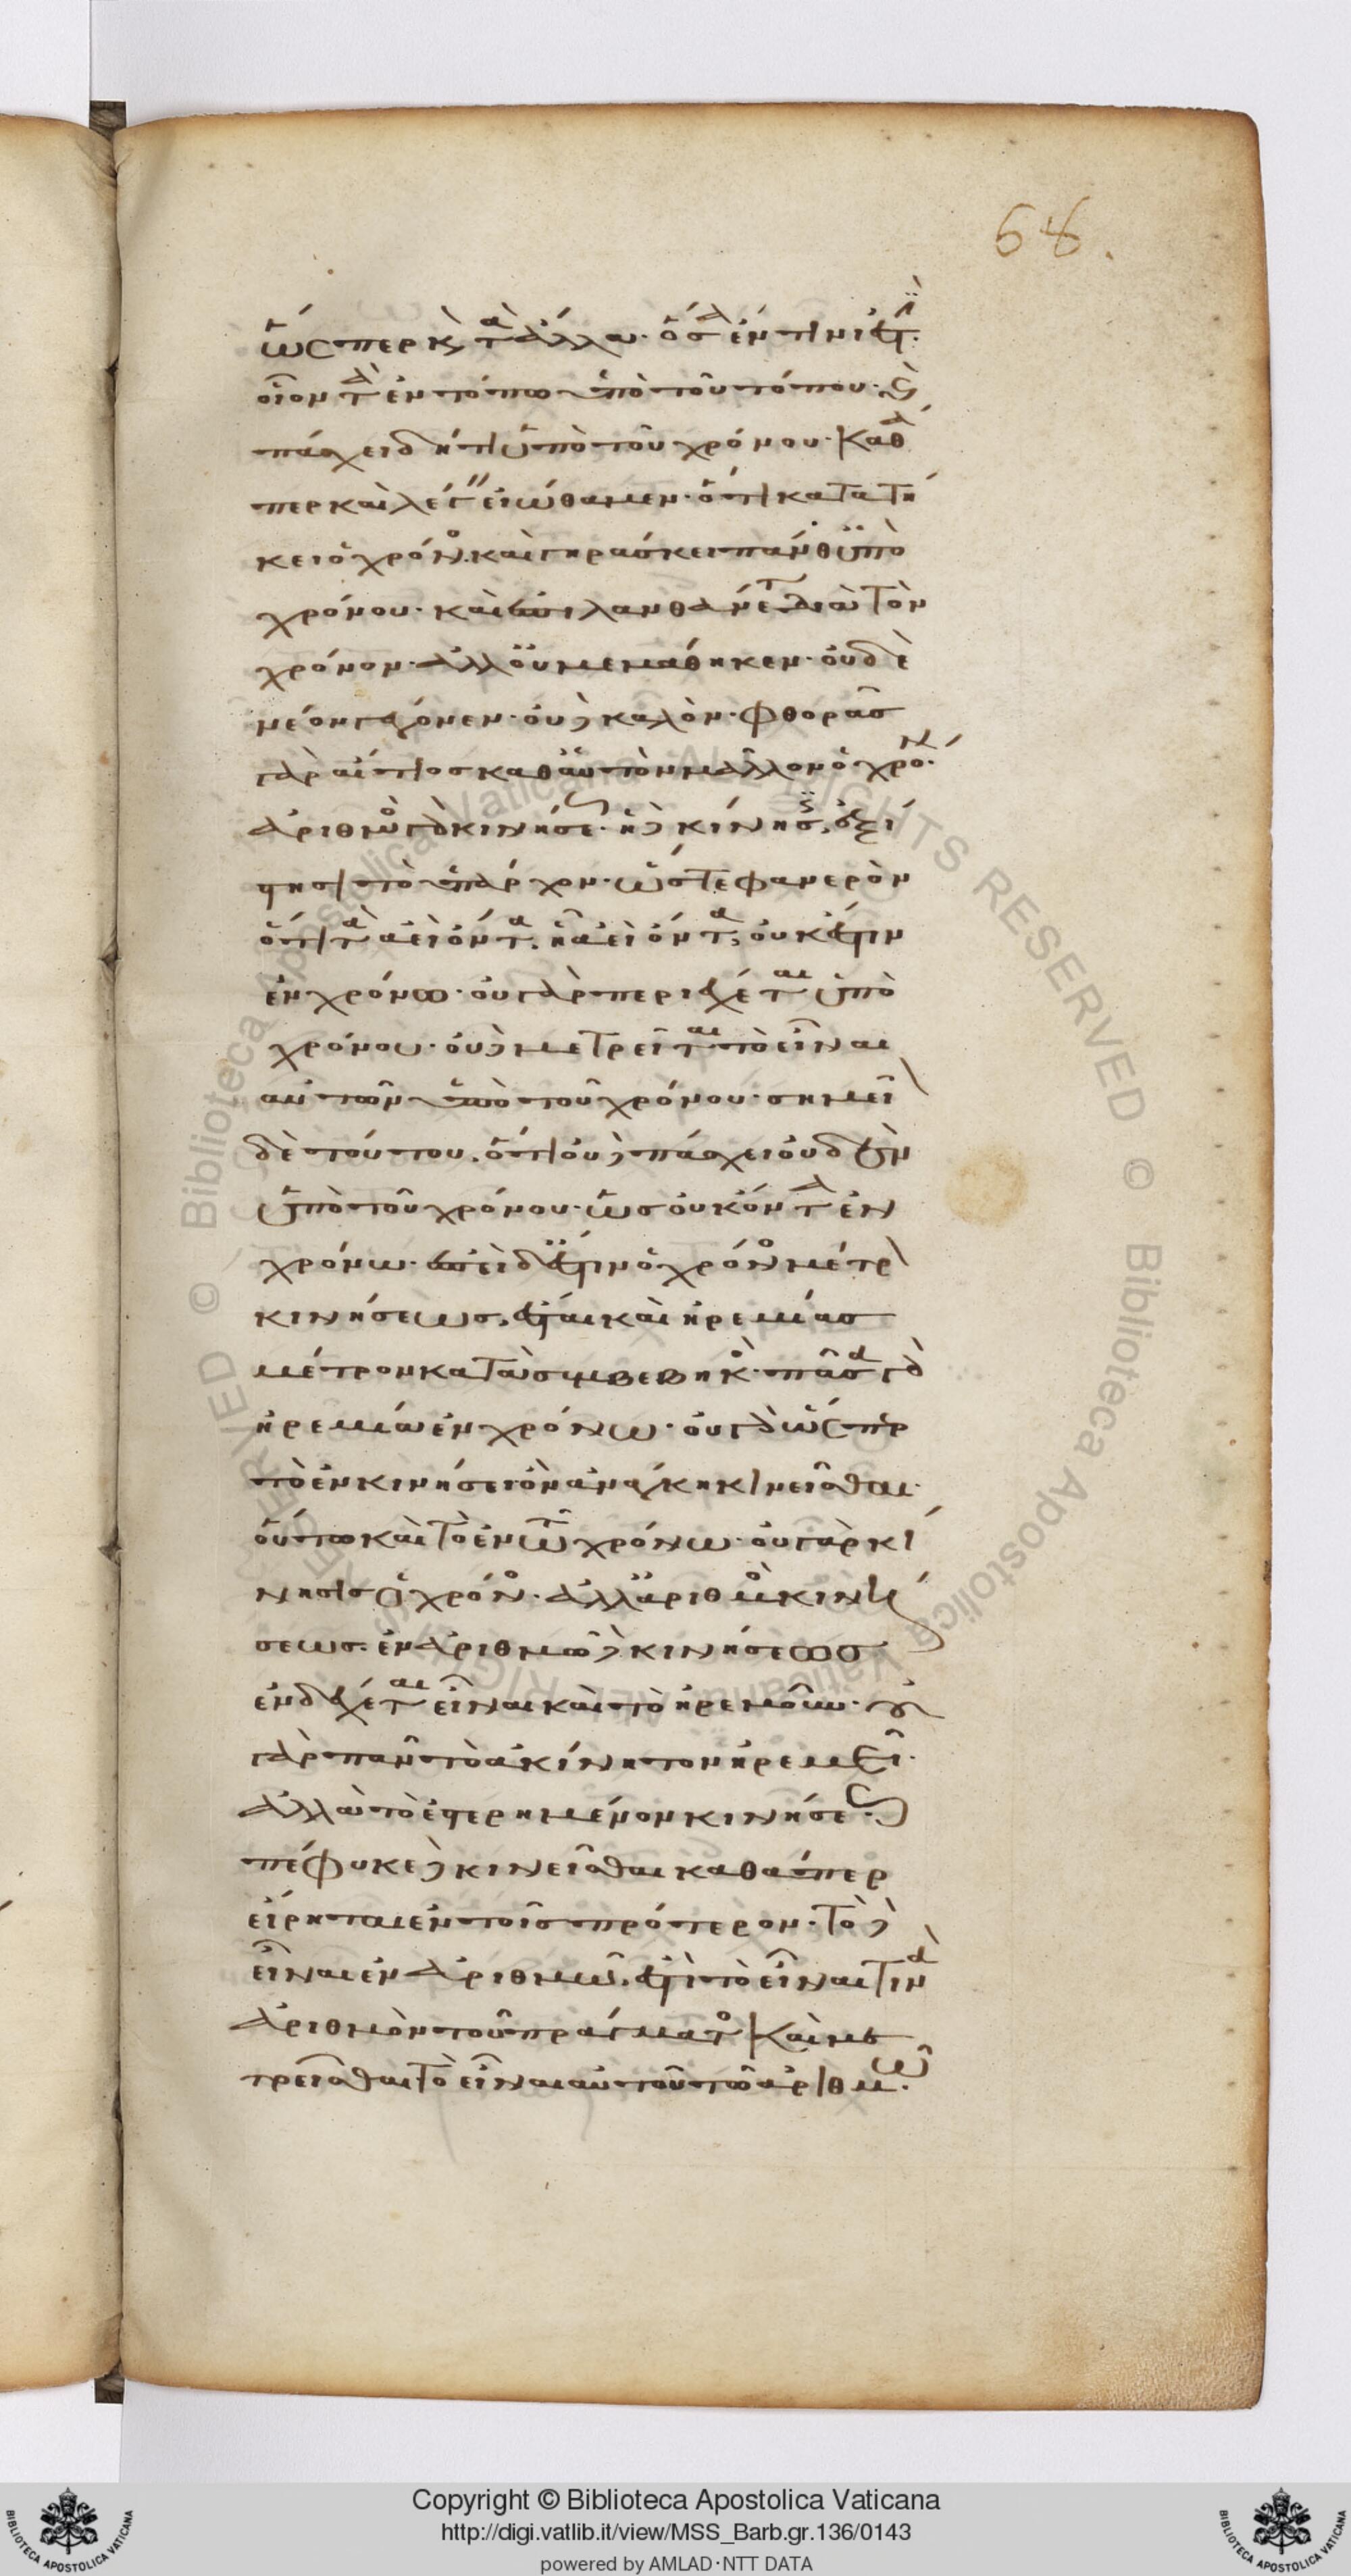 68.
ὥσπερ κ(αὶ) τὰ ἄλλα· ὅσα ἔν τινι ἐστὶν·
οἷον τὰ ἐν τόπω ὑπὸ τοῦ τόπου· καὶ
πάσχει δή τι ὑπὸ τοῦ χρόνου· καθά
περ καὶ λέγειν εἰώθαμεν· ὅτι κατατή
κει ὁ χρόνος· καὶ γηράσκει πάνθ ὑπὸ
χρόνου· καὶ ἐπιλανθάνεται διὰ τὸν
χρόνον· ἀλλ οὐ μεμάθηκεν· οὐδὲ
νέον γέγονεν· οὐδὲ καλὸν· φθορᾶς
γὰρ αἴτιος καθ αὑτὸν μᾶλλον ὁ χρόνος·
ἀριθμὸς γὰρ κινήσεως· ἡ δὲ κίνησις ἐξί
στησι τὸ ὑπάρχον· ὥστε φανερὸν
ὅτι τὰ ἀεὶ ὄντα, ἧ ἀεὶ ὄντα, οὐκ ἔστιν
ἐν χρόνω· οὐ γὰρ περιέχεται ὑπὸ
χρόνου· οὐδὲ μετρεῖται τὸ εἶναι
αὐτῶν ὑπὸ τοῦ χρόνου· σημεῖον
δὲ τούτου. ὅτι οὐδὲ πάσχει οὐδὲν
ὑπὸ τοῦ χρόνου· ὡς οὐκ ὄντα ἐν
χρόνω· ἐπεὶ δ ἔστιν ὁ χρόνος μέτρον
κινήσεως, ἔσται καὶ ἠρεμίας
μέτρον κατὰ συμβεβηκός· πᾶσα γὰρ
ἠρεμία ἐν χρόνω· οὐ γὰρ ὥσπερ
τὸ ἐν κινήσει ὂν ἀνάγκη κινεῖσθαι·
οὕτω καὶ τὸ ἐν τῶ χρόνω· οὐ γὰρ κί
νησις ὁ χρόνος· ἀλλ ἀριθμὸς κινή
σεως· ἐν ἀριθμῶ δὲ κινήσεως
ἐνδέχεται εἶναι καὶ τὸ ἠρεμοῦν· οὐ
γὰρ πᾶν τὸ ἀκίνητον ἠρεμεῖ·
ἀλλὰ τὸ ἐστερημένον κινήσεως·
πεφυκὸς δὲ κινεῖσθαι καθάπερ
εἴρηται ἐν τοῖς πρότερον· τὸ δὲ
εἶναι ἐν ἀριθμῶ, ἐστὶ τὸ εἶναι τινὰ
ἀριθμὸν τοῦ πράγματος καὶ με
τρεῖσθαι τὸ εἶναι αὐτοῦ τῶ ἀριθμῶ·
Copyright © Biblioteca Apostolica Vaticana
http://digi.vatlib.it/view/MSS_Barb.gr.136/0143
powered by AMLAD·NTT DATA